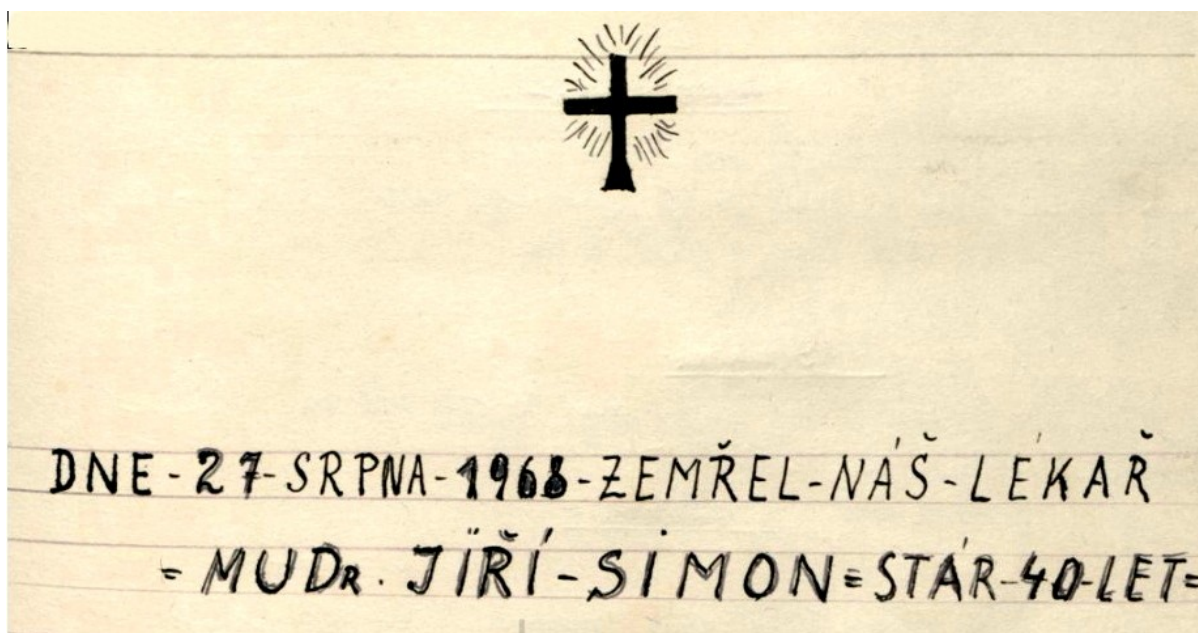 DNE - 27 - SRPNA - 1968 - ZEMŘEL - NÁŠ - LÉKAŘ
= MUDR. JIŘÍ - SIMON = STÁR - 40 - LET =